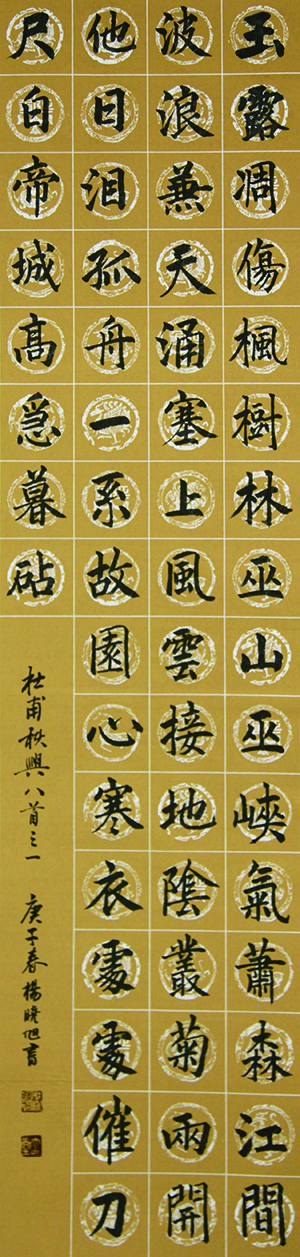 玉露凋傷楓樹林巫山巫峽氣蕭森江間
波浪兼天涌塞上風雲接地陰叢菊兩開
他日泪孤舟一系故園心寒衣處處催刀
尺白帝城高急暮砧
杜甫秋興八首之一 庚子春楊曉旭書